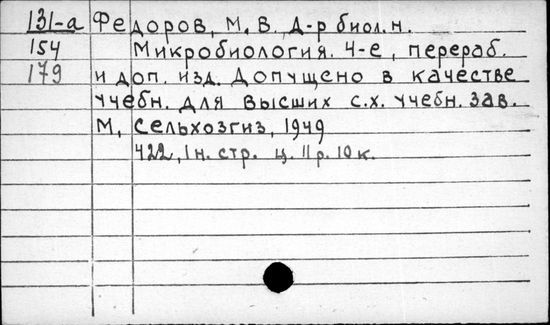 131-а Федоров, М. В. Д-р биол. н.
154 Микробиология. 4-е, перераб.
179 и доп. изд. Допущено в качестве
учебн. для высших с.х. учебн. зав.
М, Сельхозгиз, 1949
422, 1 н. стр. ц. 11 р. 10 к.